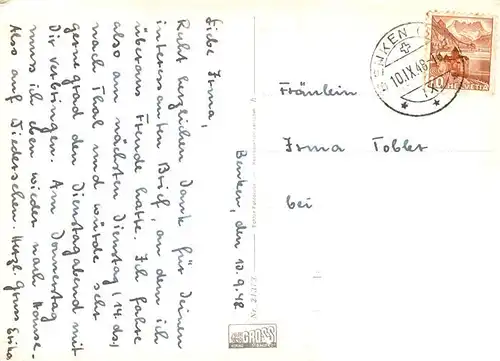 Benken, den 10.9.48
Liebe Irma,
Recht herzlichen Dank für Deinen
interessanten Brief, an dem ich
überaus Freude hatte. Ich fahre
also am nächsten Dienstag (14. ds.)
nach Thal und würde sehr
gerne grad den Dienstagabend mit
Dir verbringen. Am Donnerstag
muss ich eben wieder nach Hause.
Also auf Wiedersehen. Herzl. Gruss Erika
Fräulein
Irma Tobler
bei
BENKEN
10.IX.48
HELVETIA
GROSS